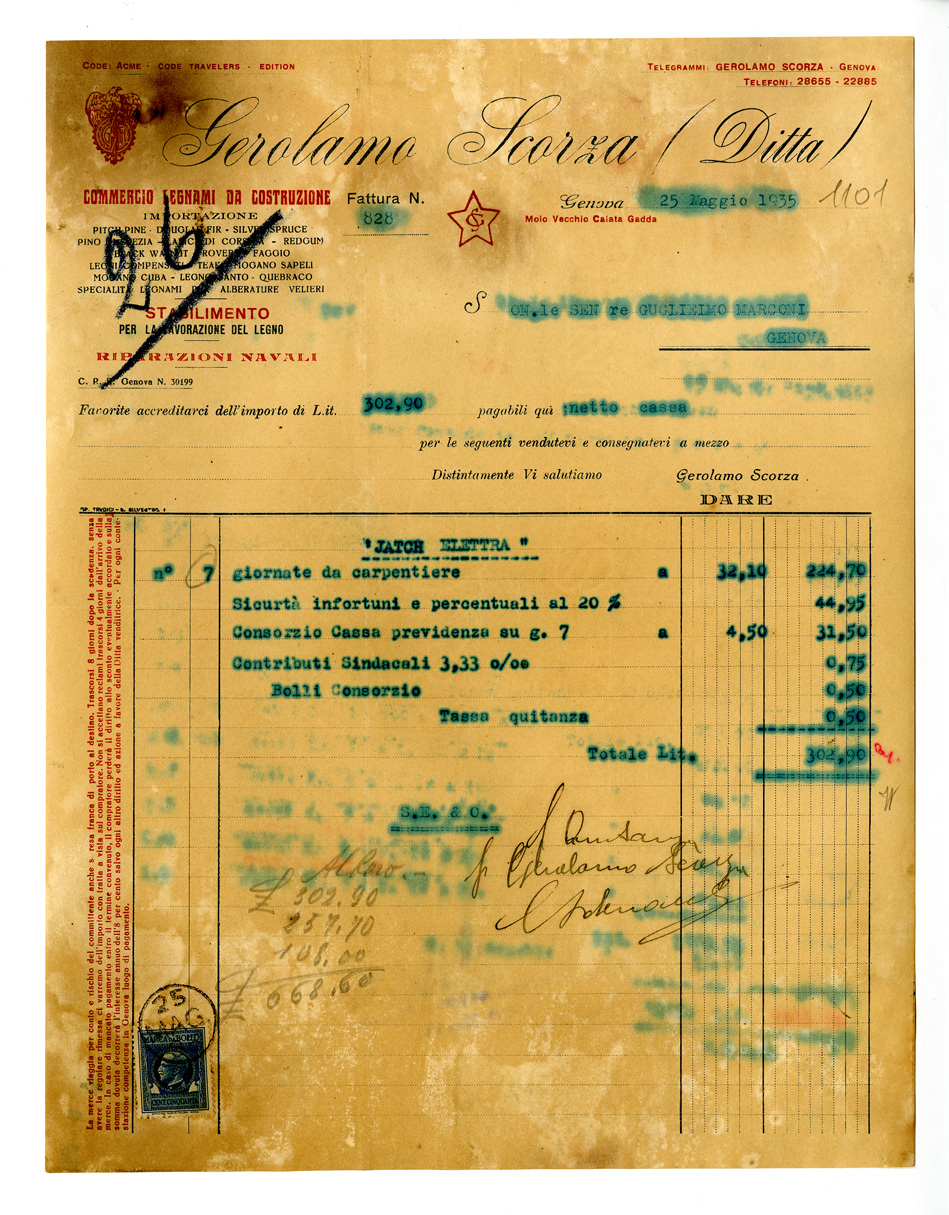 CODE: ACME - CODE TRAVELERS - EDITION
TELEGRAMMI: GEROLAMO SCORZA - GENOVA
TELEFONI: 28655 - 22885
Gerolamo Scorza (Ditta)
COMMERCIO LEGNAMI DA COSTRUZIONE
IMPORTAZIONE
PITCH PINE - DOUGLAS FIR - SILVER SPRUCE
PINO SVEZIA - LARICI DI CORSICA - REDGUM
BLACK WALNUT ROVERE FAGGIO
LEGNI COMPENSATI TEAK MOGANO SAPELI
MOGANO CUBA - LEGNO SANTO - QUEBRACO
SPECIALITÀ LEGNAMI PER ALBERATURE VELIERI
STABILIMENTO
PER LA LAVORAZIONE DEL LEGNO
RIPARAZIONI NAVALI
C. P. E. Genova N. 30199
26
Fattura N.
828
GS
Genova 25 Maggio 1935
Molo Vecchio Calata Gadda
1101
S ON.le SEN re GUGLIEIMO MARCONI
GENOVA
Favorite accreditarci dell'importo di L.it. 302,90 pagabili quì netto cassa
per le seguenti vendutevi e consegnatevi a mezzo
Distintamente Vi salutiamo Gerolamo Scorza
DARE
"JATCH ELETTRA "
n° 7 giornate da carpentiere a 32,10 224,70
Sicurtà infortuni e percentuali al 20 % 44,95
Consorzio Cassa previdenza su g. 7 a 4,50 31,50
Contributi Sindacali 3,33 o/oo 0,75
Bolli Consorzio 0,50
Tassa quitanza 0,50
Totale Lit. 302,90
S.E. & O.
p Gerolamo Scorza
Albero.
£ 302.90
257.70
108.00
£ 668.60
La merce viaggia per conto e rischio del committente anche se resa franca di porto al destino. Trascorsi 8 giorni dopo la scadenza, senza
avere la regolare rimessa ci varremo dell'importo con tratta a vista sul compratore. Non si accettano reclami trascorsi 4 giorni dall'arrivo della
merce. In caso di mancato pagamento entro il termine convenuto, il compratore perderà il diritto allo sconto eventualmente accordato e sulla
somma dovuta decorrerà l'interesse annuo dell'8 per cento salvo ogni altro diritto ed azione a favore della Ditta venditrice. - Per ogni conte-
stazione competenza in Genova luogo di pagamento.
25
MAG
MARCA DA BOLLO
CENT. CINQUANTA